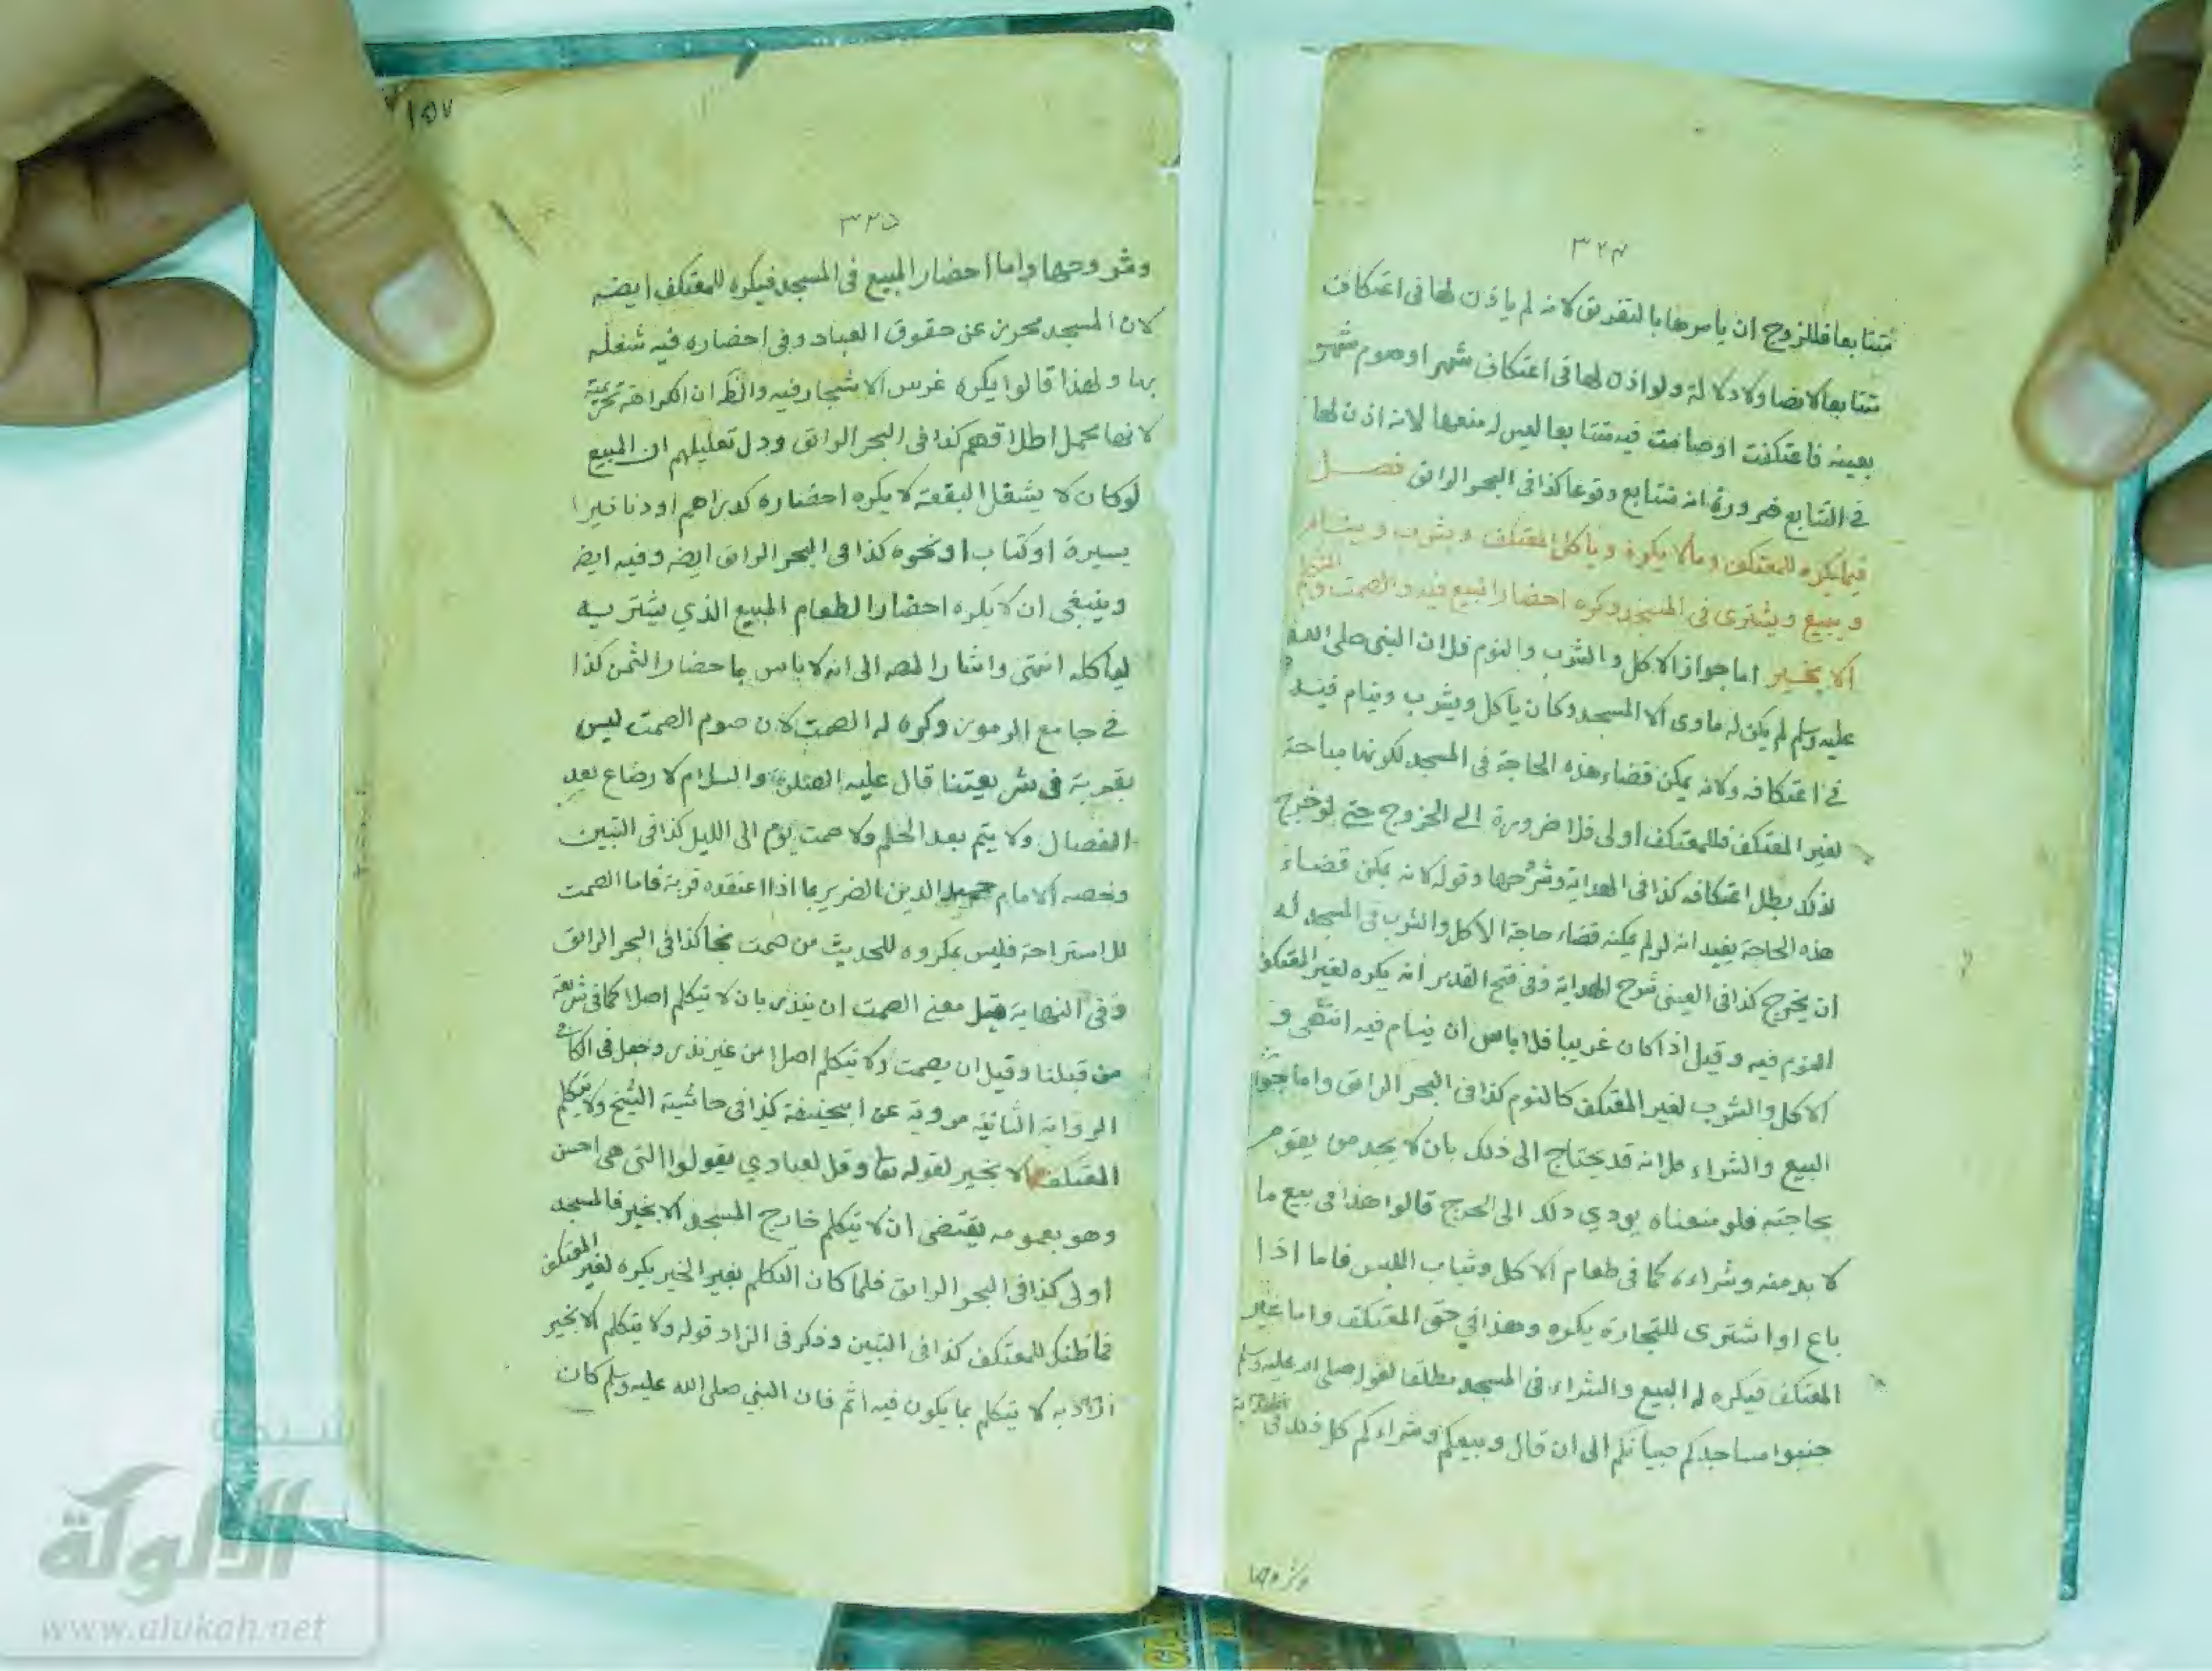 ٣٢٤
متتابعا فللزوج ان يامرها بالتفريق لانه لم ياذن لها فى اعتكاف
متتابعا لا نصا ولا دلالة ولو اذن لها فى اعتكاف شهر او صوم شهر
بعينه فاعتكفت او صامت فيه متتابعا ليس له منعها لانه اذن لها
فى التتابع ضرورة انه متتابع وقوعا كذا فى البحر الرائق فصل
فيما يكره للمعتكف وما لا يكره وياكل المعتكف ويشرب وينام
ويبيع ويشترى فى المسجد وكره احضار المبيع فيه والصمت والتكلم
الا بخير اما جواز الاكل والشرب والنوم فلان النبى صلى الله
عليه وسلم لم يكن له ماوى الا المسجد وكان ياكل ويشرب وينام فيه
فى اعتكافه ولانه يمكن قضاء هذه الحاجة فى المسجد لكونها مباحة
لغير المعتكف فللمعتكف اولى فلا ضرورة الى الخروج حتى لو خرج
لذلك بطل اعتكافه كذا فى الهداية وشروحها وقوله لانه يمكن قضاء
هذه الحاجة يفيد انه لو لم يمكنه قضاء حاجة الاكل والشرب فى المسجد له
ان يخرج كذا فى العينى شرح الهداية وفى فتح القدير انه يكره لغير المعتكف
النوم فيه وقيل اذا كان غريبا فلا باس ان ينام فيه انتهى و
الاكل والشرب لغير المعتكف كالنوم كذا فى البحر الرائق واما جواز
البيع والشراء فلانه قد يحتاج الى ذلك بان لا يجد من يقوم
بحاجته فلو منعناه يودي ذلك الى الحرج قالوا هذا فى بيع ما
لا بد منه وشراءه كما فى طعام الاكل وثياب اللبس فاما اذا
باع او اشترى للتجارة يكره وهذا في حق المعتكف واما غير
المعتكف فيكره له البيع والشراء فى المسجد مطلقا لقوله صلى الله عليه وسلم
جنبوا مساجدكم صبيانكم الى ان قال وبيعكم وشراءكم كل ذلك فى الهداية
وشروحها
١٥٧
٣٢٥
وشروحها واما احضار المبيع فى المسجد فيكره للمعتكف ايضه
لان المسجد محرز عن حقوق العباد وفى احضاره فيه شغله
بها ولهذا قالوا يكره غرس الاشجار فيه والظ ان الكراهة تحريمية
لانها محمل اطلاقهم كذا فى البحر الرائق ودل تعليلهم ان المبيع
لو كان لا يشغل البقعة لا يكره احضاره كدراهم او دنانير
يسيرة او كتاب او نحوه كذا فى البحر الرائق ايضه وفيه ايضه
وينبغى ان لا يكره احضار الطعام المبيع الذي يشتريه
لياكله انتهى واشار المصه الى انه لا باس باحضار الثمن كذا
فى جامع الرموز وكره له الصمت لان صوم الصمت ليس
بقربة فى شريعتنا قال عليه الصلوة والسلام لا رضاع بعد
الفصال ولا يتم بعد الحلم ولا صمت يوم الى الليل كذا فى التبين
وخصه الامام حميد الدين الضرير بما اذا اعتقده قربة فاما الصمت
للاستراحة فليس بمكروه للحديث من صمت نجا كذا فى البحر الرائق
وفى النهاية قيل معنى الصمت ان ينذر بان لا يتكلم اصلا كما فى شريعة
من قبلنا وقيل ان يصمت ولا يتكلم اصلا من غير نذر وجعل فى الكافى
الرواية الثانية مروية عن ابيحنيفة كذا فى حاشية الشيخ ولا يتكلم
المعتكف الا بخير لقوله تعا وقل لعبادي يقولوا التى هى احسن
وهو بعمومه يقتضى ان لا يتكلم خارج المسجد الا بخير فالمسجد
اولى كذا فى البحر الرائق فلما كان التكلم بغير الخير يكره لغير المعتكف
فما ظنك للمعتكف كذا فى التبين وذكر فى الزاد قوله ولا يتكلم الا بخير
اراد به لا يتكلم بما يكون فيه اثم فان النبي صلى الله عليه وسلم كان
شبكة
الألوكة
www.alukah.net